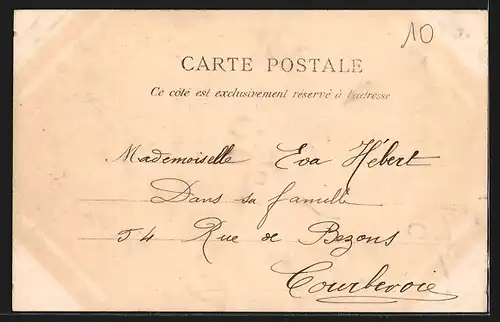 10
CARTE POSTALE
Ce côté est exclusivement réservé à l'adresse
Mademoiselle Eva Hébert
Dans sa famille
54 Rue de Bezons
Courbevoie